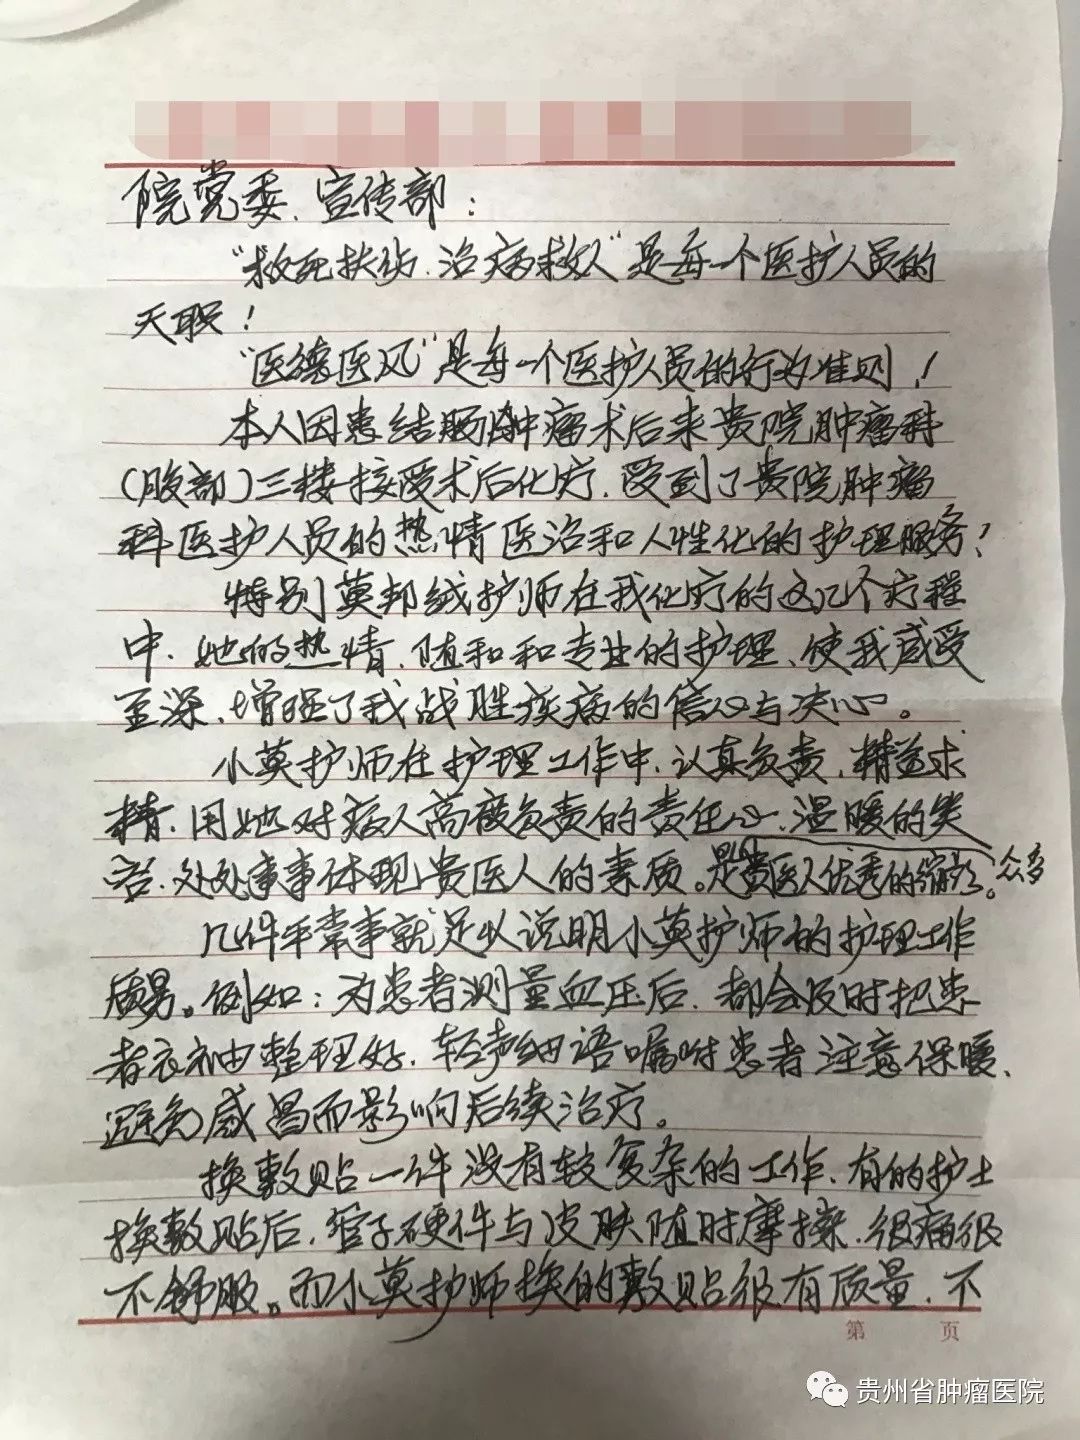 院党委、宣传部：
“救死扶伤、治病救人”是每一个医护人员的
天职！
“医德医风”是每一个医护人员的行为准则！
本人因患结肠肿瘤术后来贵院肿瘤科
（腹部）三楼接受术后化疗、受到了贵院肿瘤
科医护人员的热情医治和人性化的护理服务！
特别莫邦绒护师在我化疗的这几个疗程
中、她的热情、随和和专业的护理、使我感受
至深、增强了我战胜疾病的信心与决心。
小莫护师在护理工作中、认真负责、精益求
精、用她对病人高度负责的责任心、温暖的笑
容、处处事事体现贵医人的素质。是众多贵医人优秀的缩影。
几件平常事就足以说明小莫护师的护理工作
质量。例如：为患者测量血压后、都会及时把患
者衣袖整理好、轻声细语嘱咐患者注意保暖、
避免感冒而影响后续治疗。
换敷贴一件没有较复杂的工作、有的护士
换敷贴后、管子硬件与皮肤随时摩擦、很痛很
不舒服。而小莫护师换的敷贴很有质量、不
第 页
贵州省肿瘤医院